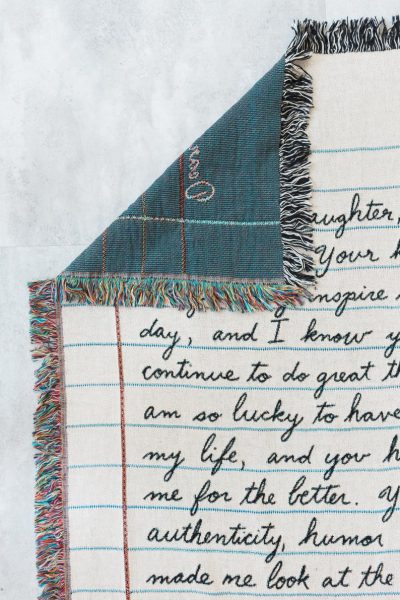 aughter,
Your
inspire
day, and I know y
continue to do great th
am so lucky to have
my life, and you h
me for the better. Y
authenticity, humor
made me look at the